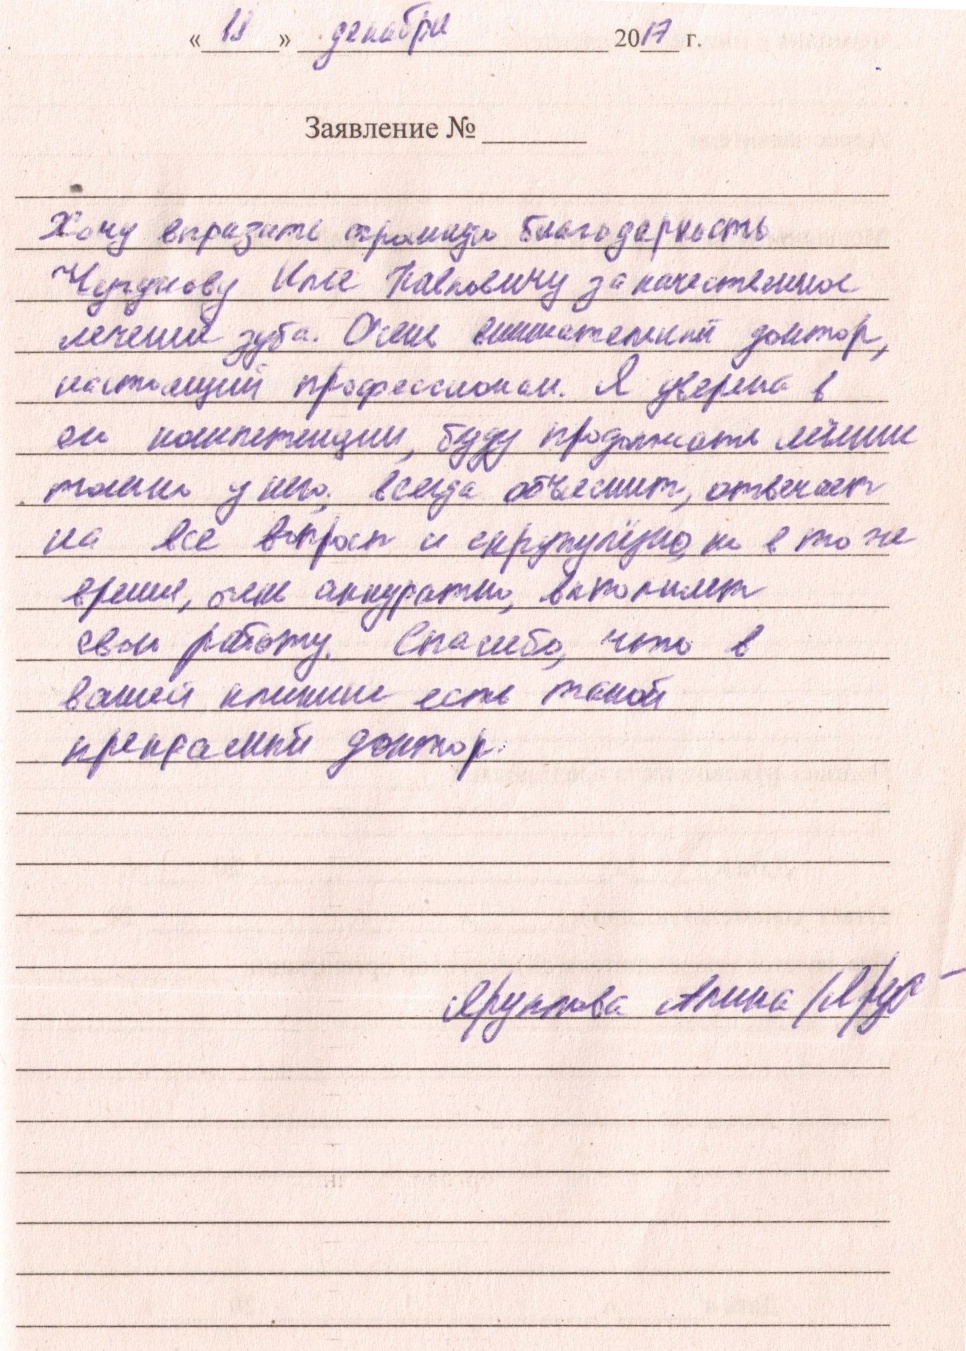 « » декабря 2017 г.
Заявление №
Хочу выразить огромную благодарность
Илье Павловичу за качественное
лечение зуба. Очень внимательный доктор,
настоящий профессионал. Я уверена в
его компетенции, буду продолжать лечение
только у него. Всегда объяснит, отвечает
на все вопросы и скрупулёзно, но в то же
время, очень аккуратно, выполняет
свою работу. Спасибо, что в
вашей клинике есть такой
прекрасный доктор.
Алина